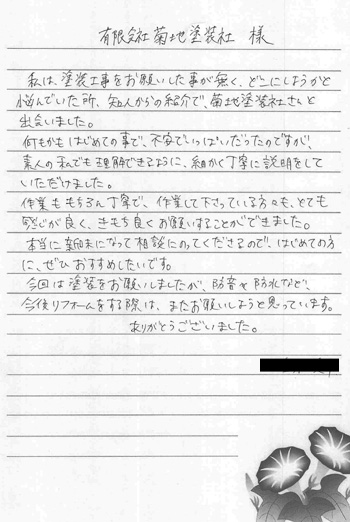 有限会社 菊地塗装社 様
私は、塗装工事をお願いした事が無く、どこにしようかと
悩んでいた所、知人からの紹介で、菊地塗装社さんと
出会いました。
何もかもはじめての事で、不安でいっぱいだったのですが、
素人の私でも理解できるように、細かく丁寧に説明をして
いただけました。
作業ももちろん丁寧で、作業して下さっている方々も、とても
感じが良く、きもち良くお願いすることができました。
本当に親味になって相談にのってくださるので、はじめての方
に、ぜひおすすめしたいです。
今回は塗装をお願いしましたが、防音や防水など、
今後リフォームをする際は、またお願いしようと思っています。
ありがとうございました。